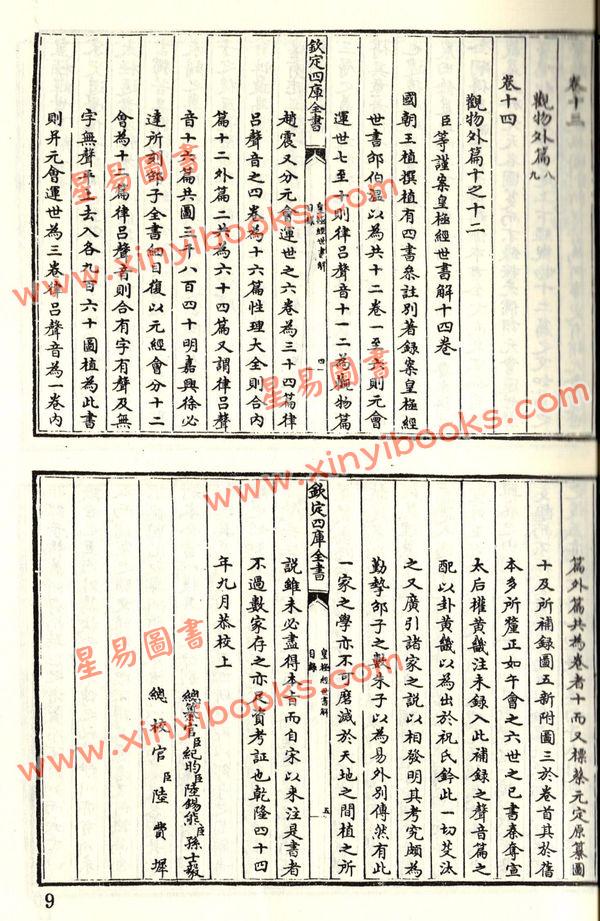 卷十三
觀物外篇八
九
卷十四
觀物外篇十之十二
臣等謹案皇極經世書解十四卷
國朝王植撰植有四書叅註別著錄案皇極經
世書邵伯溫以為共十二卷一至六則元會
運世七至十則律呂聲音十一二為觀物篇
趙震又分元會運世之六卷為三十四篇律
呂聲音之四卷為十六篇性理大全則合內
篇十二外篇二共為六十四篇又謂律呂聲
音十六篇共圖三千八百四十明嘉興徐必
達所刻邵子全書細目復以元經會分十二
會為十二篇律呂聲音則合有字有聲及無
字無聲平上去入各九百六十圖植為此書
則并元會運世為三卷律呂聲音為一卷內
欽定四庫全書
皇極經世書解
目錄
四
篇外篇共為卷者十而又標蔡元定原纂圖
十及所補錄圖五新附圖三於卷首其於舊
本多所釐正如午會之六世之巳書秦奪宣
太后權黃畿注未錄入此補錄之聲音篇之
配以卦黃畿以為出於祝氏鈐此一切芟汰
之又廣引諸家之說以相發明其考究頗為
勤摯邵子之數朱子以為易外別傳然有此
一家之學亦不可磨滅於天地之間植之所
說雖未必盡得本旨而自宋以來注是書者
不過數家存之亦足資考証也乾隆四十四
年九月恭校上
總纂官臣紀昀臣陸錫熊臣孫士毅
總校官臣陸費墀
欽定四庫全書
皇極經世書解
目錄
五
9
星易圖書
www.xinyibooks.com
星易圖書
www.xinyibooks.com
星易圖書
www.xinyibooks.com
星易圖書
www.xinyibooks.com